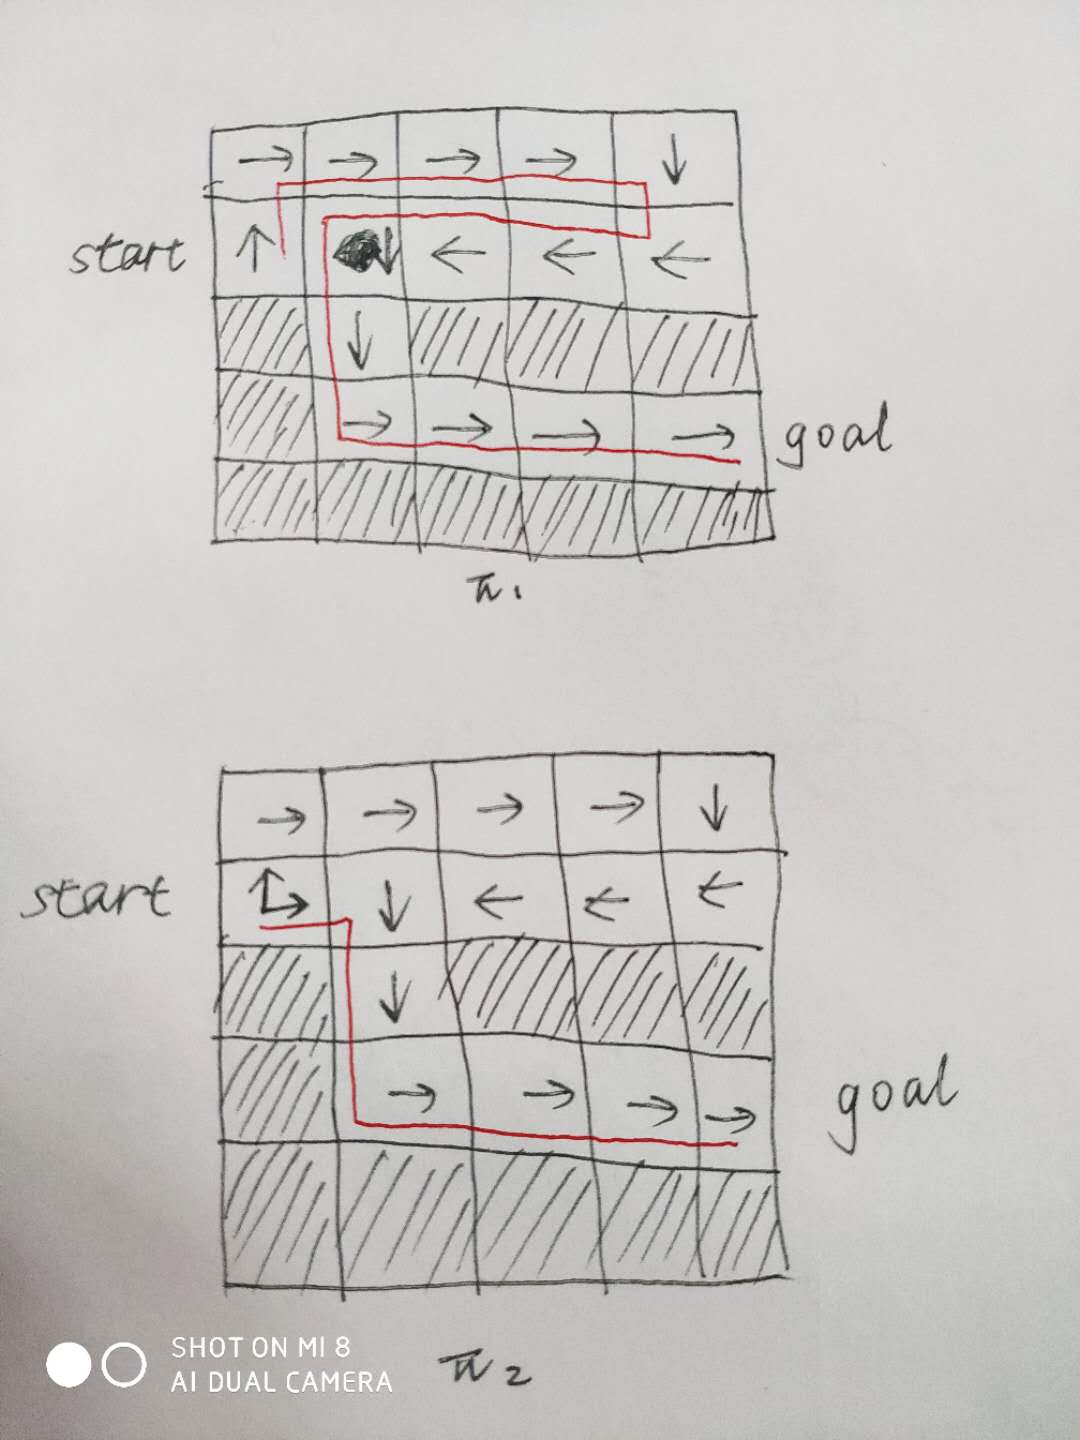 start
goal
π1
start
goal
π2
SHOT ON MI 8
AI DUAL CAMERA